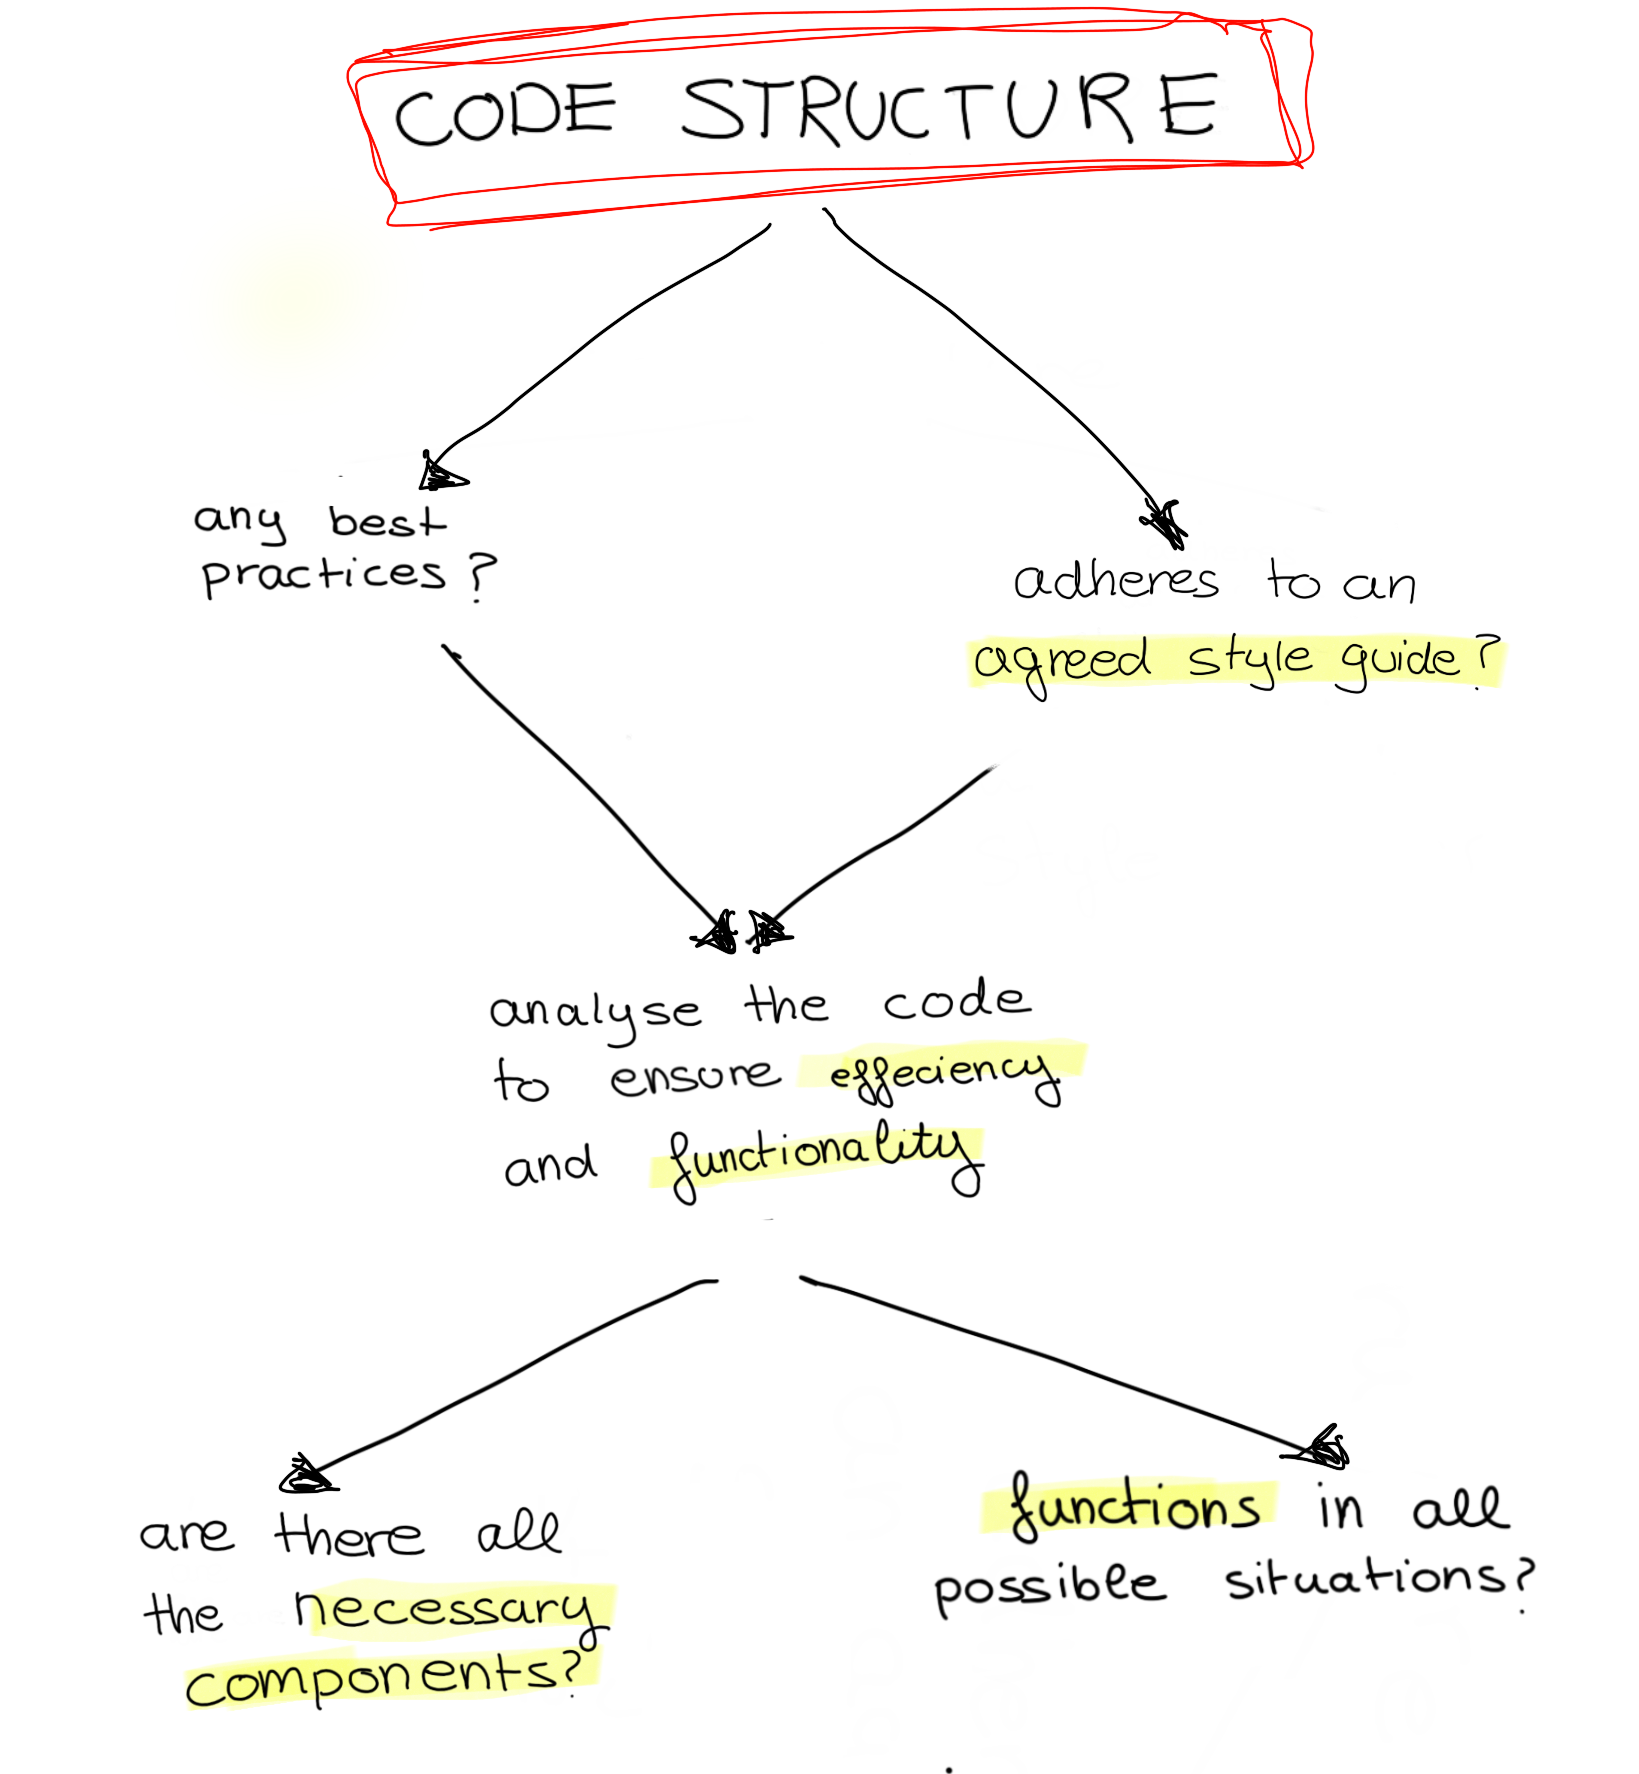 CODE STRUCTURE
any best
practices?
adheres to an
agreed style guide?
analyse the code
to ensure effeciency
and functionality
are there all
the necessary
components?
functions in all
possible situations?